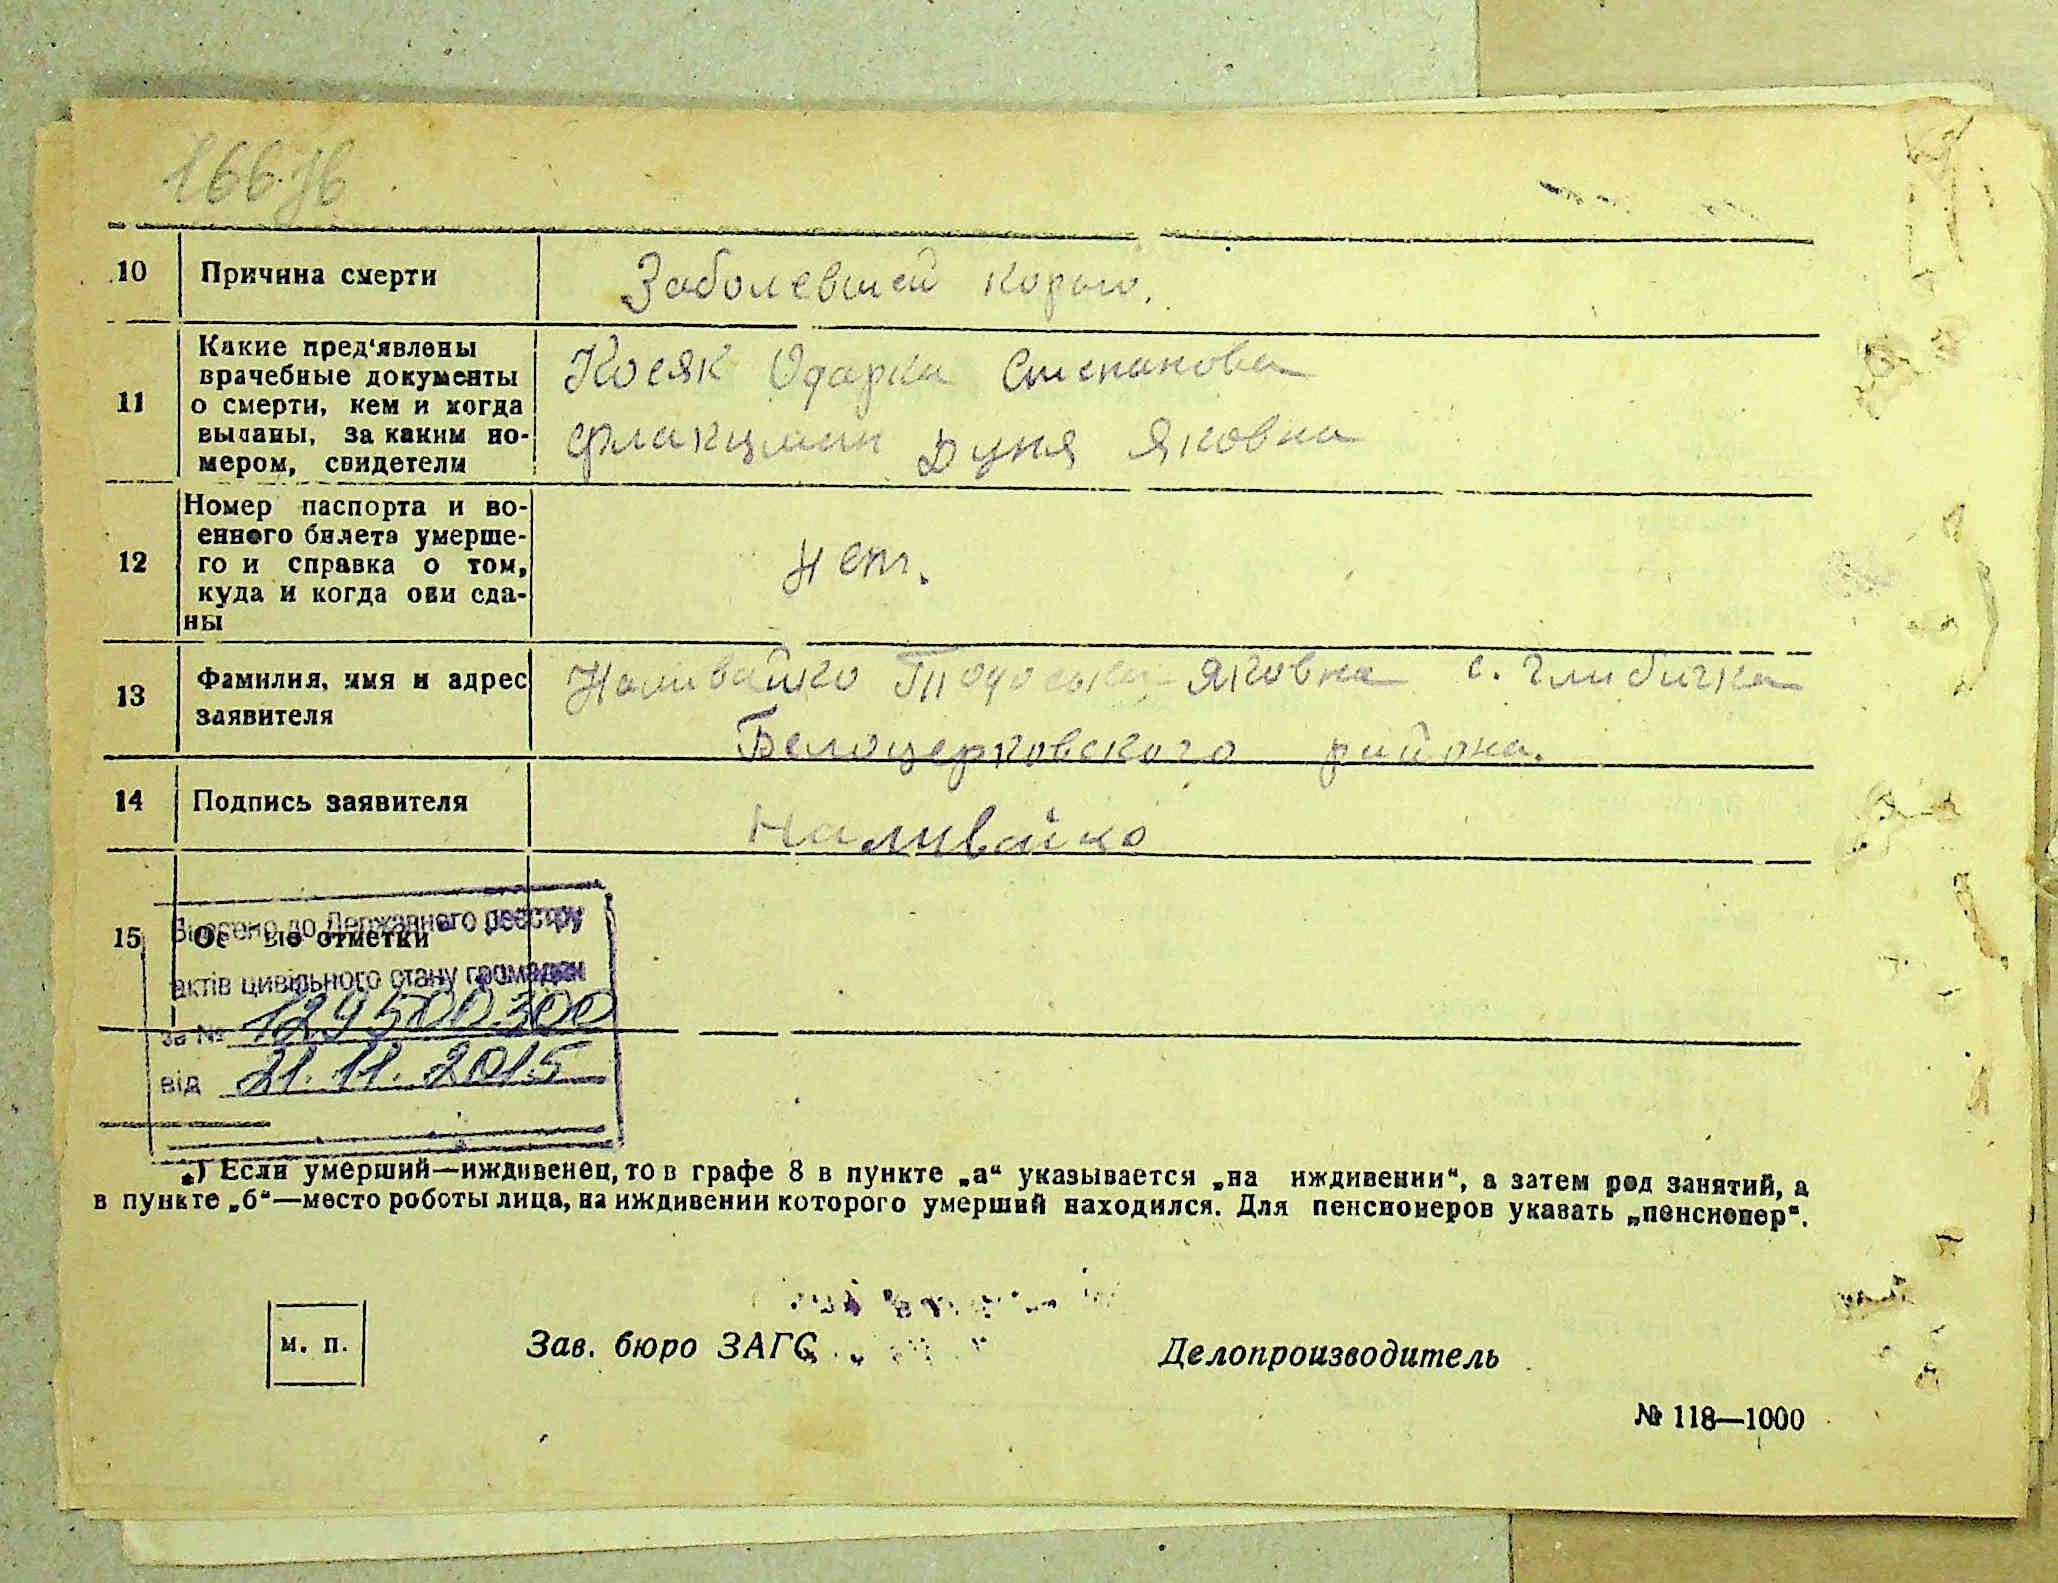 166
10 Причина смерти Заболевшей корью.
11 Какие пред‘явлены
врачебные документы
о смерти, кем и когда
выданы, за каким но-
мером, свидетели
Косяк Одарка Степановна
Дуня Яковна
12 Номер паспорта и во-
енного билета умерше-
го и справка о том,
куда и когда они сда-
ны
нет.
13 Фамилия, имя и адрес
заявителя
Наливайко Тодоська Яковна с. Глибичка
Белоцерковского района.
14 Подпись заявителя Наливайко
15 отметки
Внесено до Державного реєстру
актів цивільного стану громадян
за № 129500300
від 21.11.2015
*) Если умерший—иждивенец, то в графе 8 в пункте „а“ указывается „на иждивении“, а затем род занятий, а
в пункте „б“—место роботы лица, на иждивении которого умерший находился. Для пенсионеров указать „пенсионер“.
м. п. Зав. бюро ЗАГС Делопроизводитель
№ 118—1000